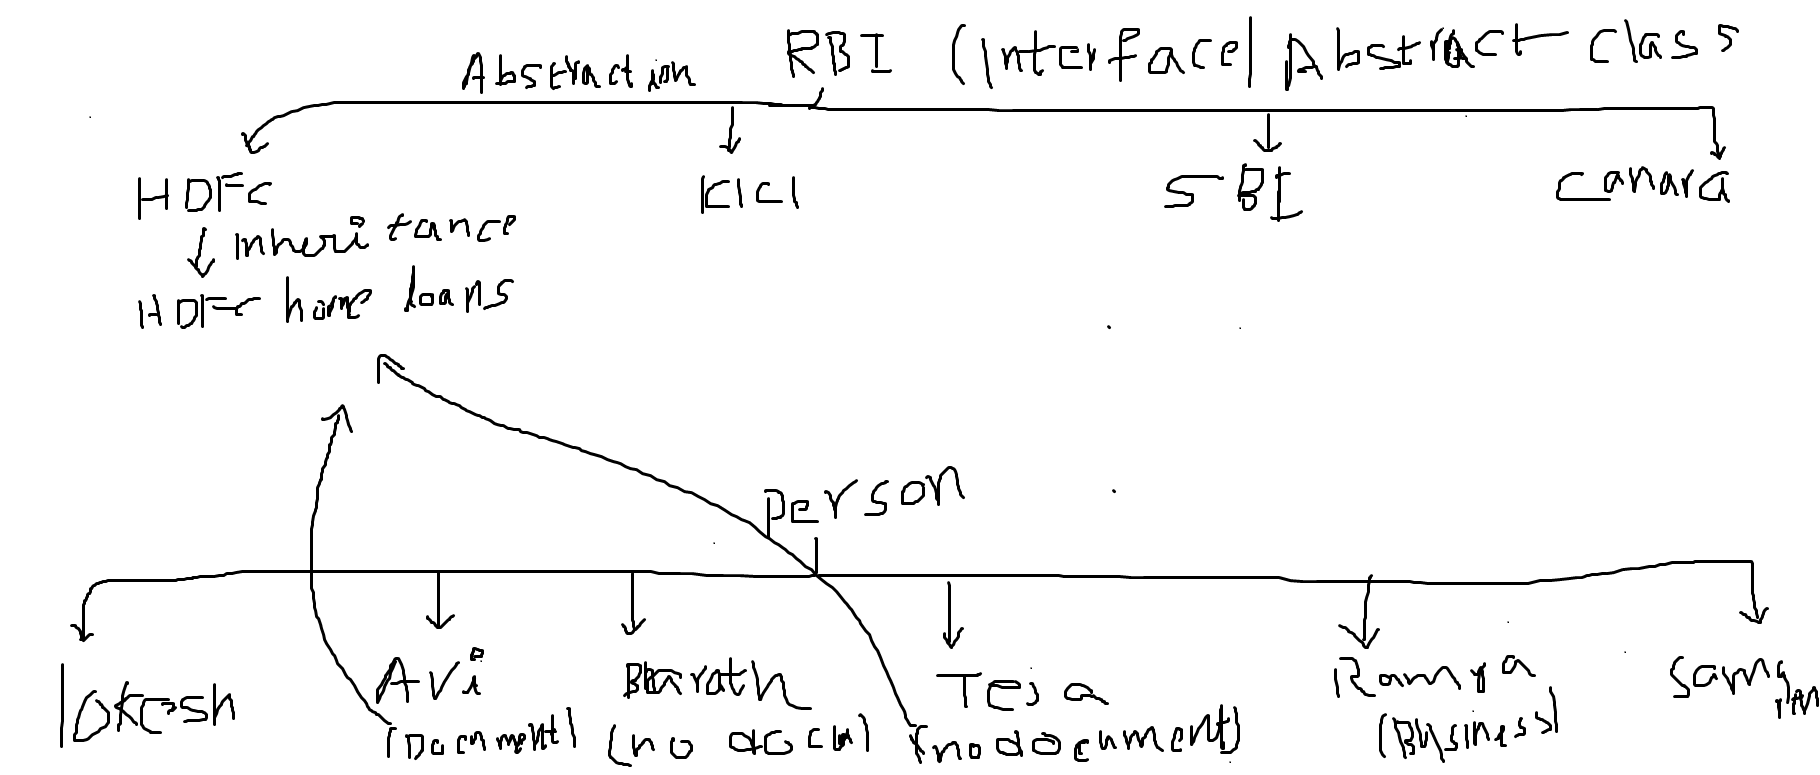 Abstraction RBI (Interface/Abstract class
HDFC ICICI SBI canara
Inheritance
HDFC home loans
person
lokesh Avi Bharath Teja Ramya
(Document) (no docu) (no document) (Business)